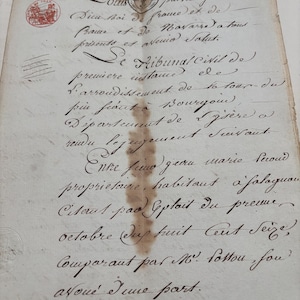 Dieu Roi de france et de
france et de Navarre a tous
présents et avenir Salut.
Le Tribunal Civil de
premiere instance de
L'arrondissement de la tour du
pin séant à Bourgoin
Département de L'isère a
rendu le jugement suivant
Entre jean marie
propriétaire habitant à Salagnon
Citant par Exploit du premier
octobre dix huit Cent Seize,
Comparant par Me. son
avoué d'une part.